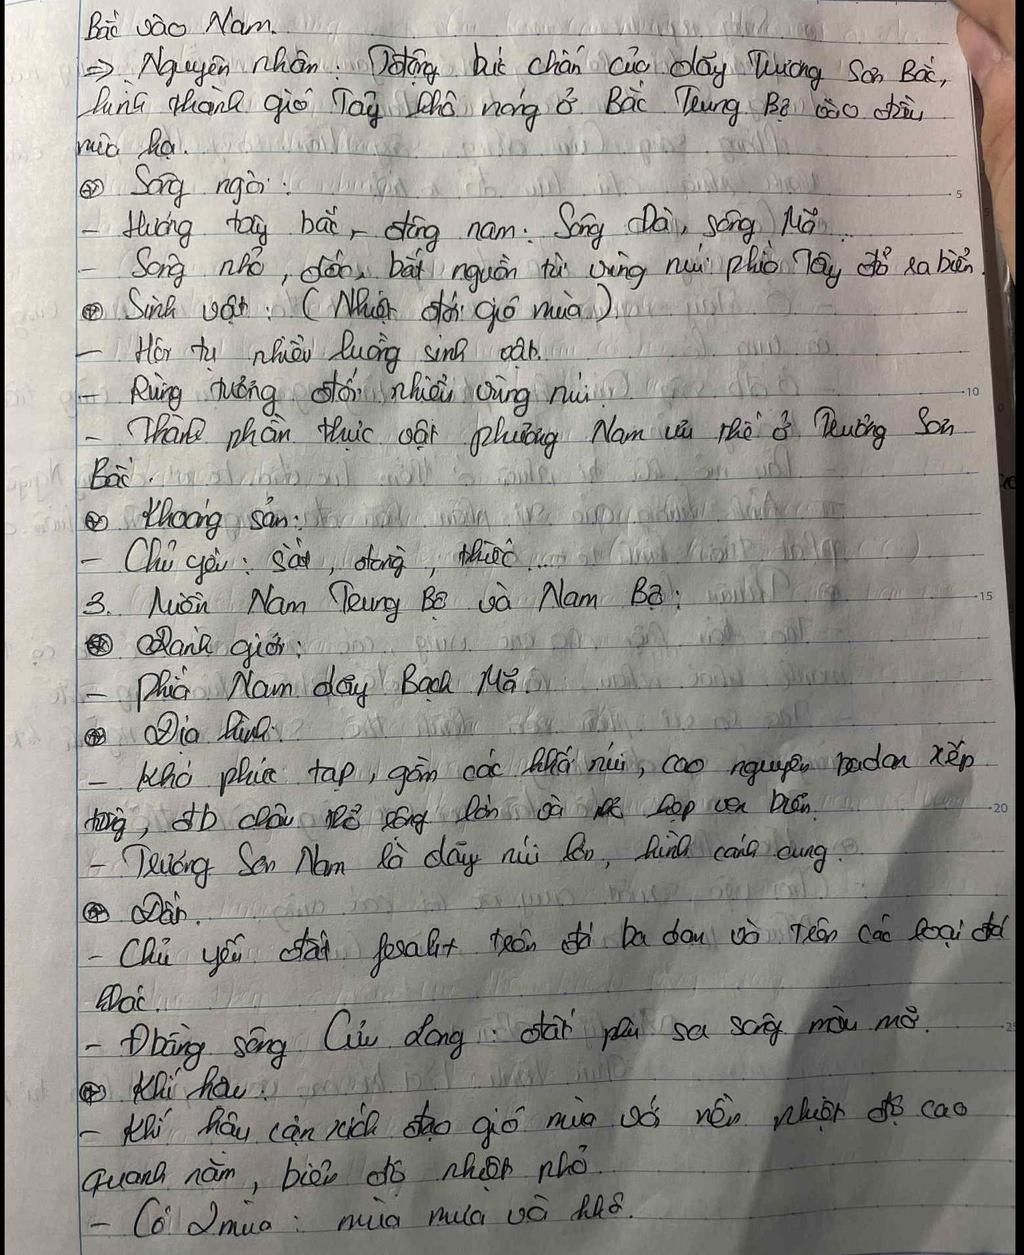 Bắc vào Nam.
⇒ Nguyên nhân: Do tường bức chắn của dãy Trương Sơn Bắc,
hình thành gió Tây khô nóng ở Bắc Trung Bộ vào đầu
mùa hạ.
⊛ Sông ngòi:
- Hướng tây bắc, đông nam: Sông Đà, sông Mã...
- Sông nhỏ, dốc, bắt nguồn từ vùng núi phía Tây đổ ra biển.
⊛ Sinh vật: (Nhiệt đới gió mùa)
- Hội tụ nhiều luồng sinh vật.
- Rừng tương đối nhiều vùng núi.
- Thành phần thực vật phương Nam ưu thế ở Trường Sơn
Bắc.
⊛ Khoáng sản:
- Chủ yếu: sắt, đồng, thiếc...
3. Miền Nam Trung Bộ và Nam Bộ:
⊛ Ranh giới:
- Phía Nam dãy Bạch Mã.
⊛ Địa hình:
- Khá phức tạp, gồm các khối núi, cao nguyên badan xếp
tầng, đb châu thổ sông lớn và hẹp ven biển.
- Trường Sơn Nam là dãy núi lớn, hình cánh cung.
⊛ Đất.
- Chủ yếu đất feralit trên đá ba dan và trên các loại đá
khác.
- Đbằng sông Cửu Long: đất phù sa sông màu mỡ.
⊛ Khí hậu:
- Khí hậu cận xích đạo gió mùa với nền nhiệt độ cao
quanh năm, biên độ nhiệt nhỏ.
- Có 2 mùa: mùa mưa và khô.